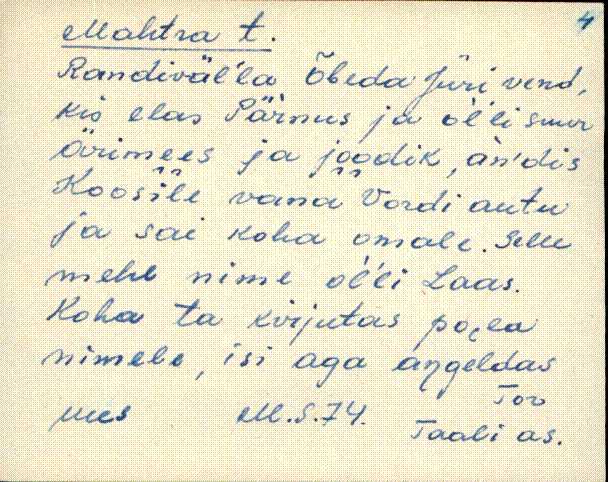 4
Mahtra t.
Randiväl'la Õbeda Jüri vend,
kis elas Pärnus ja ol'li suur
ärimees ja joodik, än'dis
Koosile vana Vordi autu
ja sai koha omale. Selle
mehe nime ol'li Laas.
Koha ta kirjutas poea
nimele, isi aga aŋgeldas
Tor
M.S.74.
Taali as.